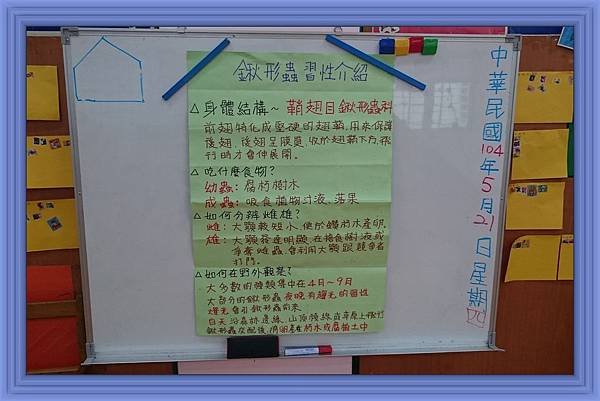 鍬形蟲習性介紹
△身體結構~ 鞘翅目鍬形蟲科
前翅特化成堅硬的翅鞘,用來保護
後翅,後翅呈膜質,收於翅鞘下方,飛
行時才會伸展開。
△吃什麼食物?
幼蟲: 腐朽樹木
成蟲: 吸食植物汁液、落果
△如何分辨雌雄?
雌: 大顎較短小,便於鑽朽木產卵,
雄: 大顎發達明顯,在搶食樹液或
爭奪雌蟲,會利用大顎跟競爭者
打鬥。
△如何在野外觀察?
大多數的種類集中在4月~9月
大部分的鍬形蟲 夜晚有趨光的習性
燈光會引鍬形蟲前來
白天沿森林邊緣、山頂稜線或草原上飛行
鍬形蟲交配後,將卵產在朽木或腐植土中
中華民國104年5月21日星期四